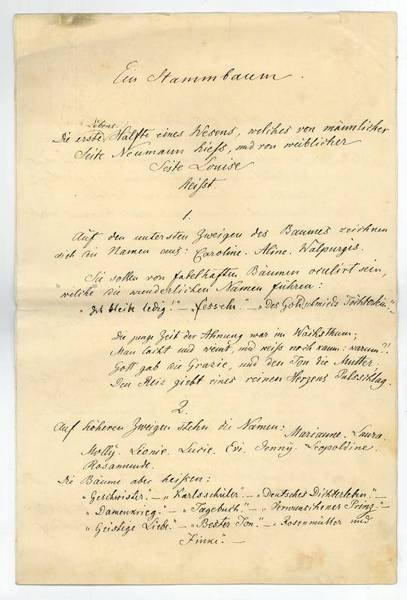 Ein Stammbaum.
Lebens
Die erste Hälfte eines Wesens, welches von männlicher
Seite Neumann hiess, und von weiblicher
Seite Louise
heißt
1.
Auf den untersten Zweigen des Baumes zeichnen
sich die Namen aus: Caroline. Aline. Walpurgis.
Sie sollen von fabelhaften Bäumen oculirt sein,
welche die wunderlichen Namen führen:
"Ich bleibe ledig!" — "Fesseln" — "Des Goldschmieds Töchterlein."
Die junge Zeit der Ahnung war im Wachsthum;
Man lacht und weint, und weiß noch kaum: warum?!
Gott gab die Grazie, und den Ton die Mutter.
Den Reiz giebt eines reinen Herzens Pulsschlag.
2.
Auf höheren Zweigen stehn die Namen: Marianne. Laura.
Molly. Leonie. Lucie. Evi. Jenny. Leopoldine.
Rosamunde.
Die Bäume aber heißen:
"Geschwister." — "Karlsschüler" — "Deutsches Dichterleben." —
"Damenkrieg." — "Tagebuch." — "Verwunschener Prinz." —
"Geistige Liebe." — "Bester Ton." — "Rosenmüller und
Finke." —